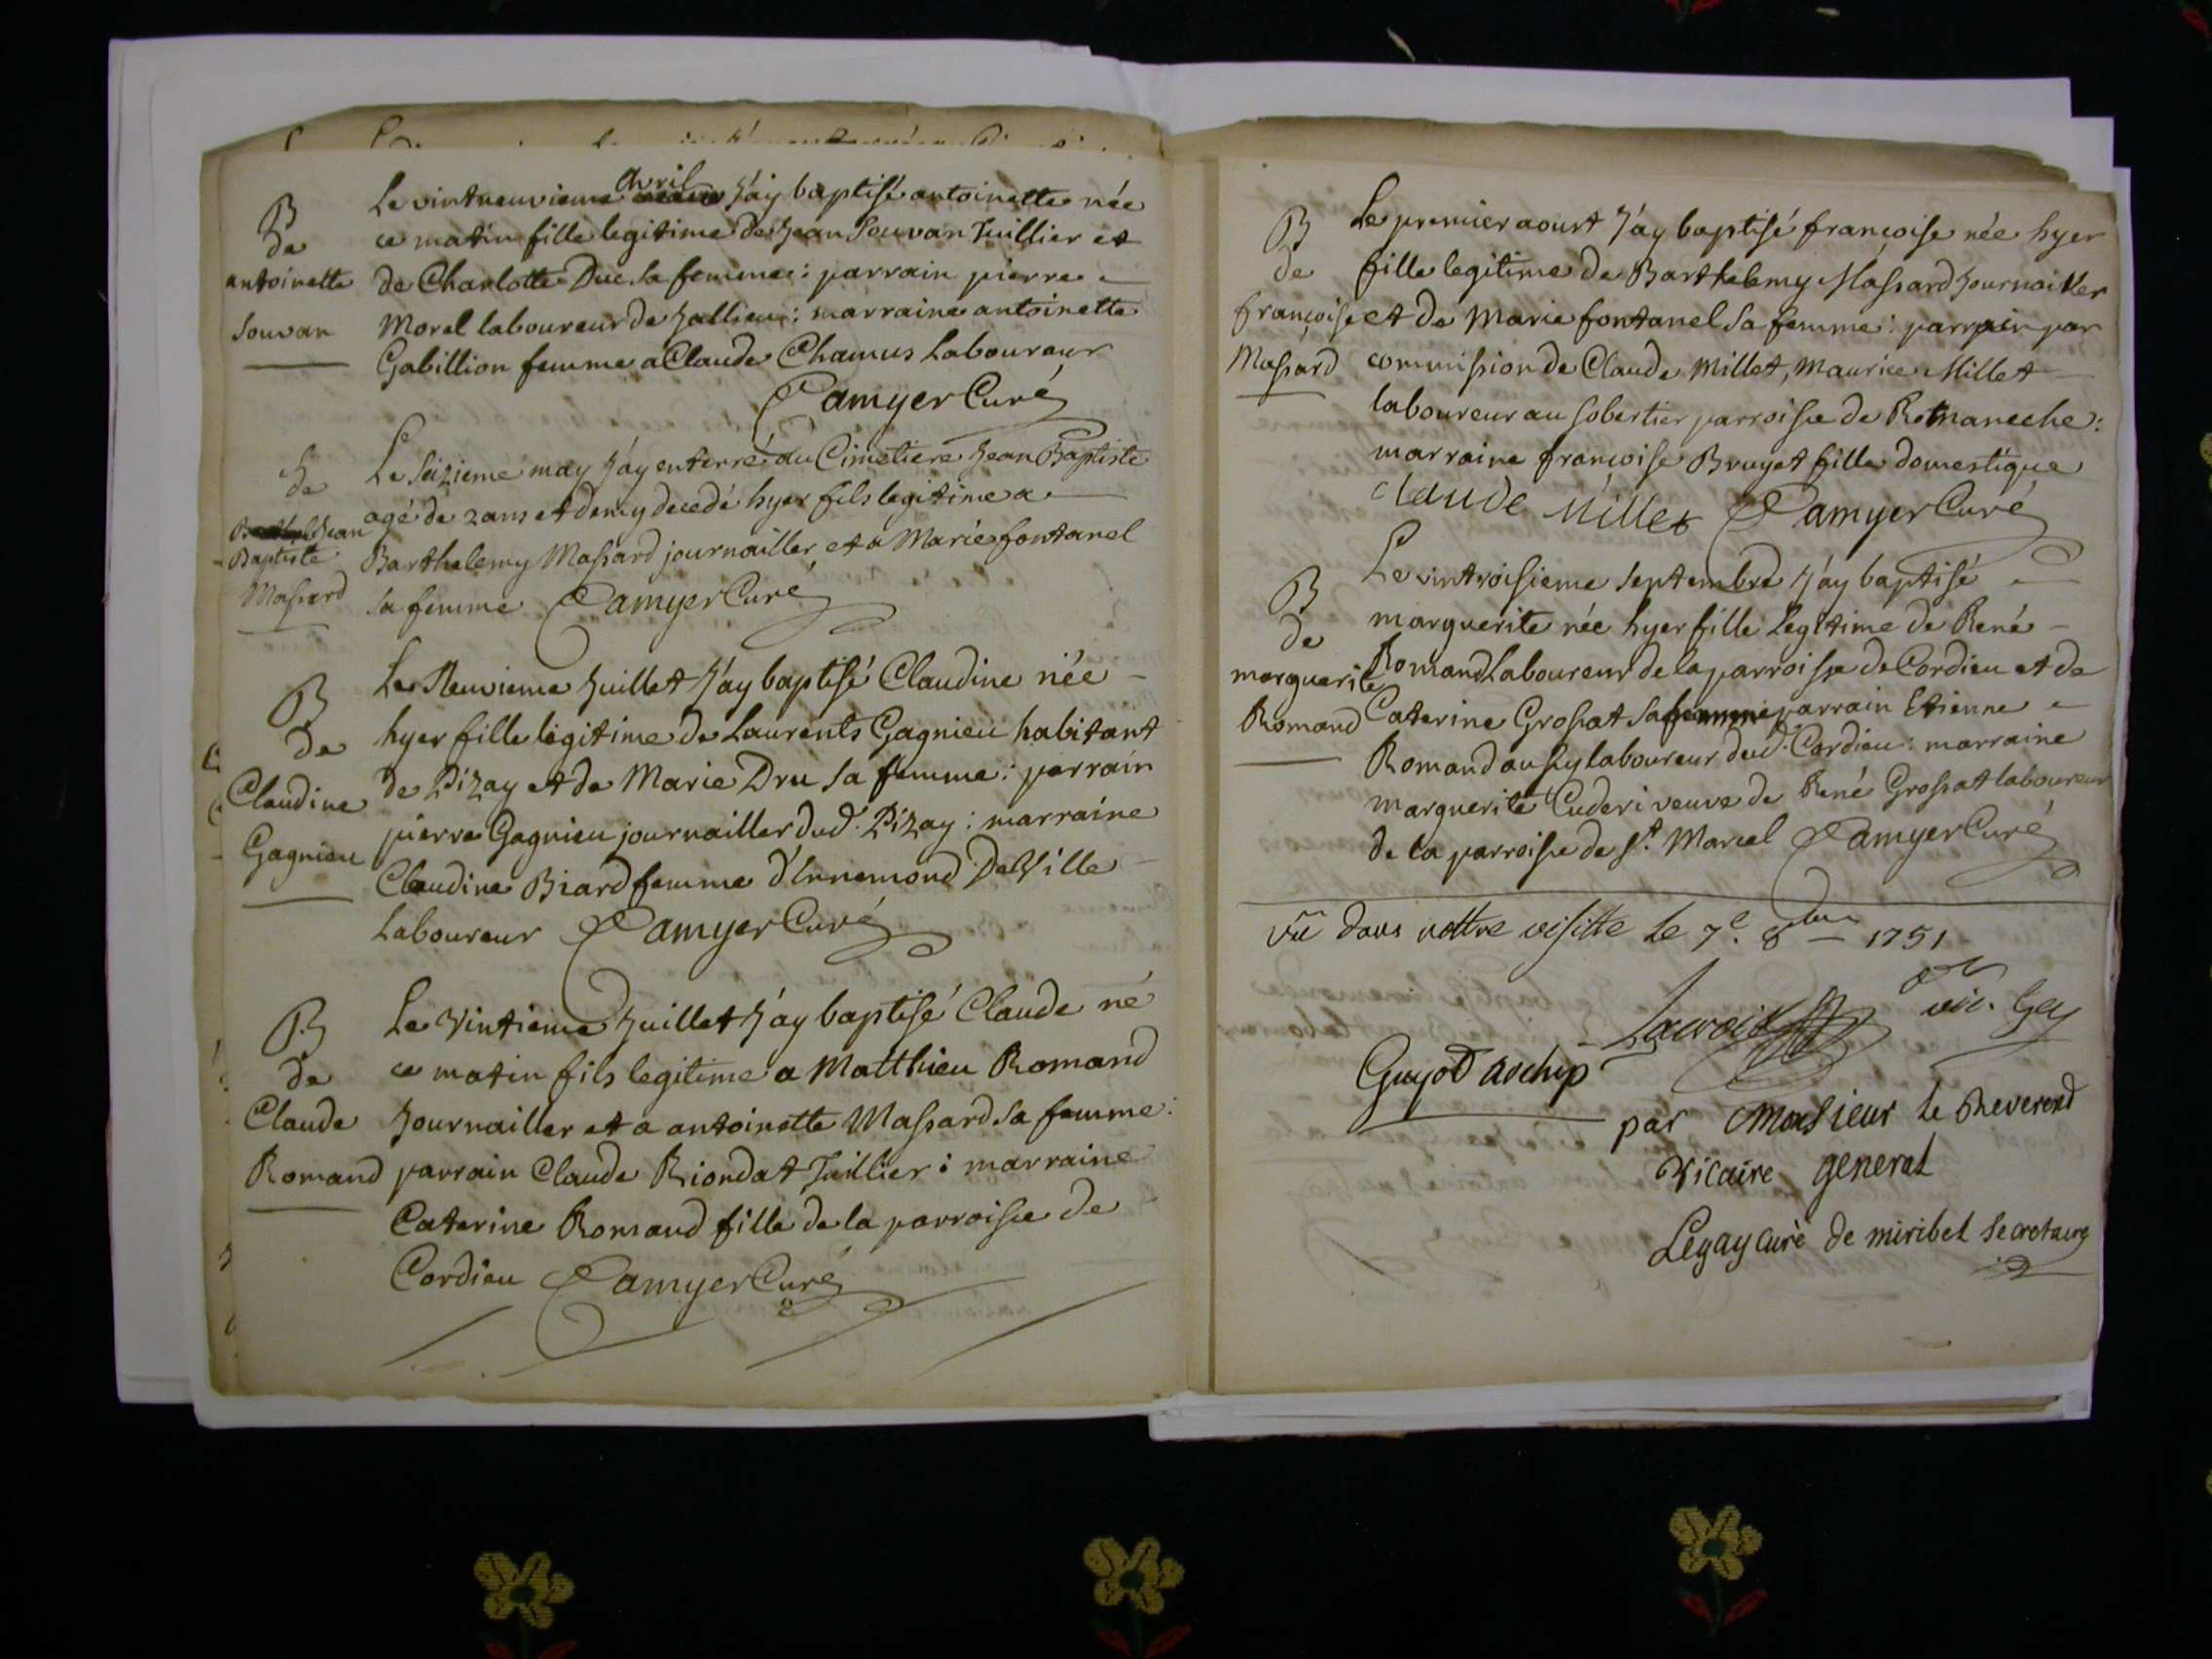 B
de
antoinette
Souvan
Le vintneuvieme avril J'ay baptisé antoinette née
ce matin fille legitime de Jean Souvan Tuillier et
de Charlotte Duc sa femme : parrain pierre
Morel laboureur de Jallieu : marraine antoinette
Gabillion femme a Claude Chamus Laboureur
Camyer Curé
S
de
Jean
Baptiste
Massard
Le Seizieme may J'ay enterré au Cimetiere Jean Baptiste
agé de 2 ans et demy decedé hyer fils legitime a
Barthelemy Massard journailler et a Marie fontanel
sa femme Camyer Curé
B
de
Claudine
Gagnieu
Le Neuvieme Juillet J'ay baptisé Claudine née
hyer fille legitime de Laurents Gagnieu habitant
de Pizay et de Marie Dru sa femme : parrain
pierre Gagnieu journailler dud. Pizay : marraine
Claudine Biard femme d'Ennemond DeVille
Laboureur Camyer Curé
B
de
Claude
Romand
Le Vintieme Juillet J'ay baptisé Claude né
ce matin fils legitime a Matthieu Romand
Journailler et a antoinette Massard sa femme :
parrain Claude Riondat Tuillier : marraine
Caterine Romand fille de la parroisse de
Cordieu Camyer Curé
B
de
françoise
Massard
Le premier aoust J'ay baptisé françoise née hyer
fille legitime de Barthelemy Massard Journailler
et de Marie fontanel sa femme : parrain par
commission de Claude Millet, Maurice Millet
laboureur au Sobertier parroisse de Romaneche :
marraine françoise Bruyat fille domestique
claude Millet Camyer Curé
B
de
marguerite
Romand
Le vintroisieme Septembre J'ay baptisé
marguerite née hyer fille Legitime de René
Romand Laboureur de la parroisse de Cordieu et de
Caterine Grossat sa femme parrain Etienne
Romand aussy laboureur dud. Cordieu : marraine
marguerite Cuderi veuve de René Grossat laboureur
de la parroisse de St. Marcel Camyer Curé
vû dans nottre visitte le 7e. 8bre 1751
Lacroix vic. gen
Guyot archip
par Monsieur le Reverend
Vicaire general
Legay curé de miribel Secretaire